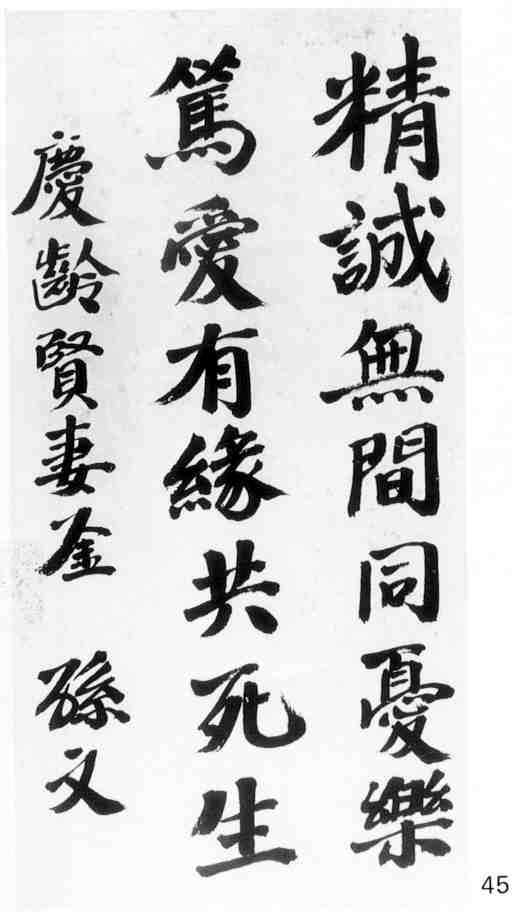 精誠無間同憂樂
篤愛有緣共死生
慶齡賢妻鉴 孫文
45